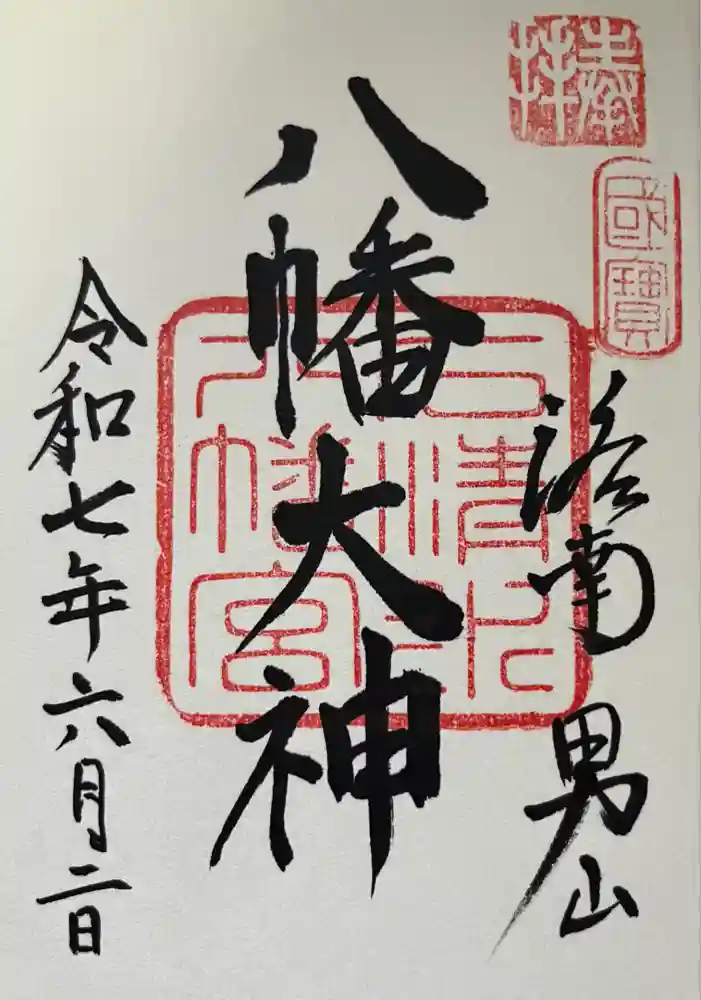 奉拝
國寳
洛南 男山
八幡大神
石清水
八幡宮
令和七年六月二日